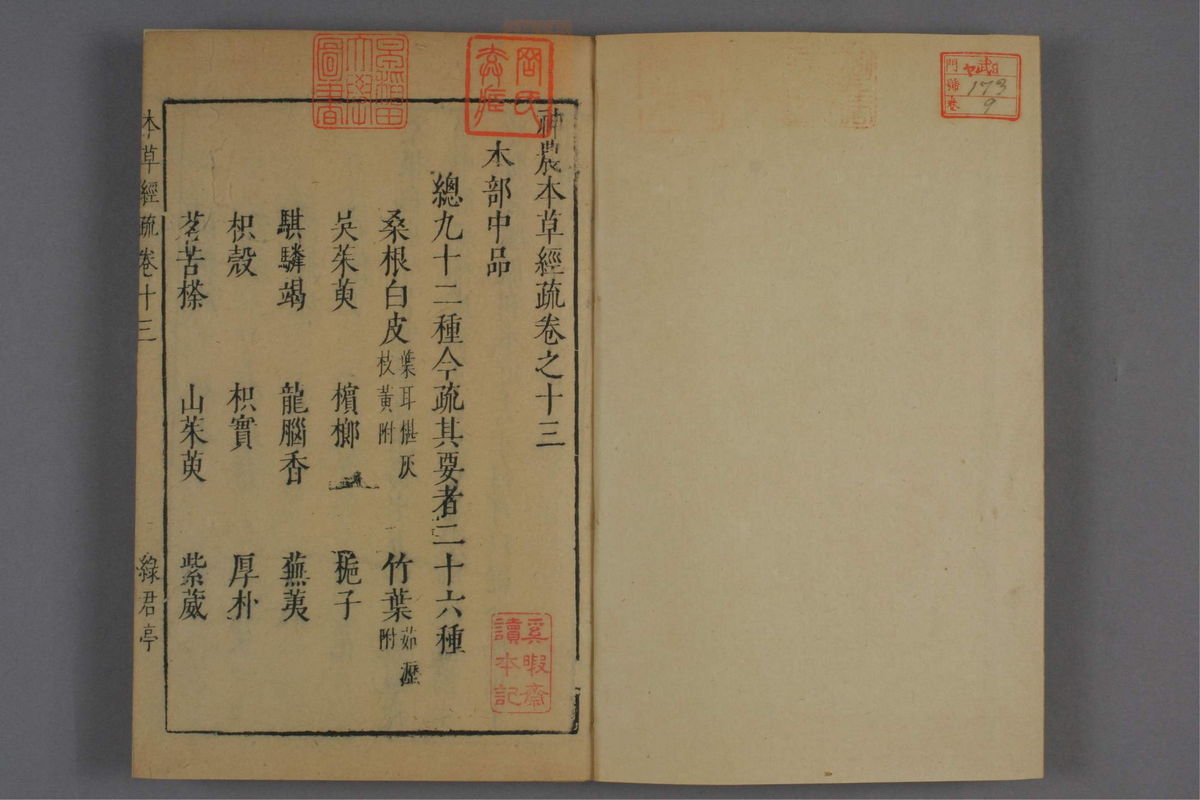 神農本草經疏卷之十三
木部中品
總九十二種今疏其要者二十六種
桑根白皮 葉耳椹灰枝黃附 竹葉 茹瀝附
吳茱萸 檳榔 梔子
騏驎竭 龍腦香 蕪荑
枳殼 枳實 厚朴
茗苦𣗪 山茱萸 紫葳
本草經疏卷十三 綠君亭
早稻田大學圖書
奚暇齋讀本記
門 號 卷
173
9